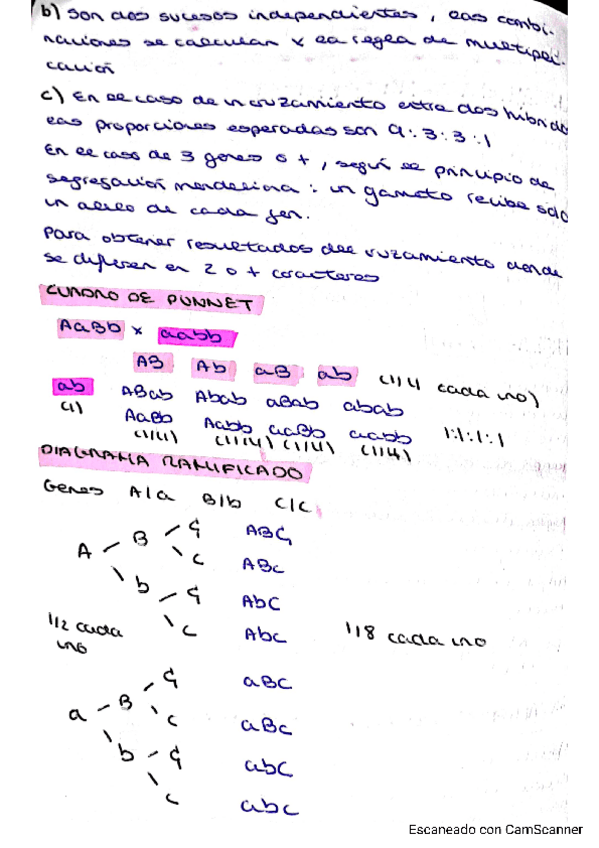 b) Son dos sucesos independientes, las combi-
naciones se calculan x la regla de multipli-
cación
c) En el caso de un cruzamiento entre dos híbridos
las proporciones esperadas son 9:3:3:1
En el caso de 3 genes o +, según el principio de
segregación mendeliana: un gameto recibe solo
un alelo de cada gen.
Para obtener resultados del cruzamiento donde
se difieren en 2 o + caracteres
CUADRO DE PUNNET
AaBb x aabb
AB Ab aB ab (1/4 cada uno)
ab ABab Abab aBab abab
(1) AaBb Aabb aaBb aabb 1:1:1:1
(1/4) (1/4) (1/4) (1/4)
DIAGRAMA RAMIFICADO
Genes A/a B/b C/c
A B C ABC
c ABc
b C AbC
c Abc
1/2 cada uno
1/8 cada uno
a B C aBC
c aBc
b C abC
c abc
Escaneado con CamScanner